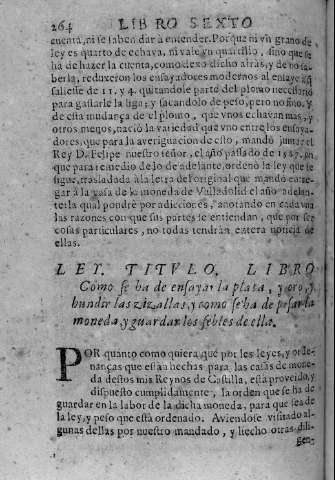 264 LIBRO SEXTO
cuenta, ni se saben dar à entender. Porque ni vn grano de
ley es quarto de echava, ni vale vn quartillo, sino que se
ha de hazer la cuenta, como dexo dicho atràs, y de no sa-
berla, reduxeron los ensayadores modernos al ensaye
saliesse de 11. y 4. quitandole parte del plomo necessario
para gastarle la liga; y sacandolo de peso, pero no fino. y
de esta mudança de el plomo, que vnos echavan mas, y
otros menos, naciò la variedad que vno entre los ensaya-
dores, que para la averiguacion de esto, mandò juntar el
Rey D. Felipe nuestro señor, el año passado de 1587. en
que para remedio de lo de adelante, ordenò la ley que se
sigue, trasladada à la letra del original que mandò entre-
gar à la casa de la moneda de Valladolid el año adelan-
te: la qual pondrè por adicciones, anotando en cada vna
las razones con que sus partes se entiendan, que por ser
cosas particulares, no todas tendràn entera noticia de
ellas.
LEY. TITVLO. LIBRO
Como se ha de ensayar la plata, y oro, y
hundir las zizallas, y como se ha de pesar la
moneda, y guardar los febles de ella.
POR quanto como quiera que por les leyes, y orde-
nanças que estàn hechas para las casas de mone-
da destos mis Reynos de Castilla, està proveido, y
dispuesto cumplidamente, la orden que se ha de
guardar en la labor de la dicha moneda, para que sea de
la ley, y peso que està ordenado. Aviendose visitado al-
gunas dellas por nuestro mandado, y hecho otras dili-
gen-